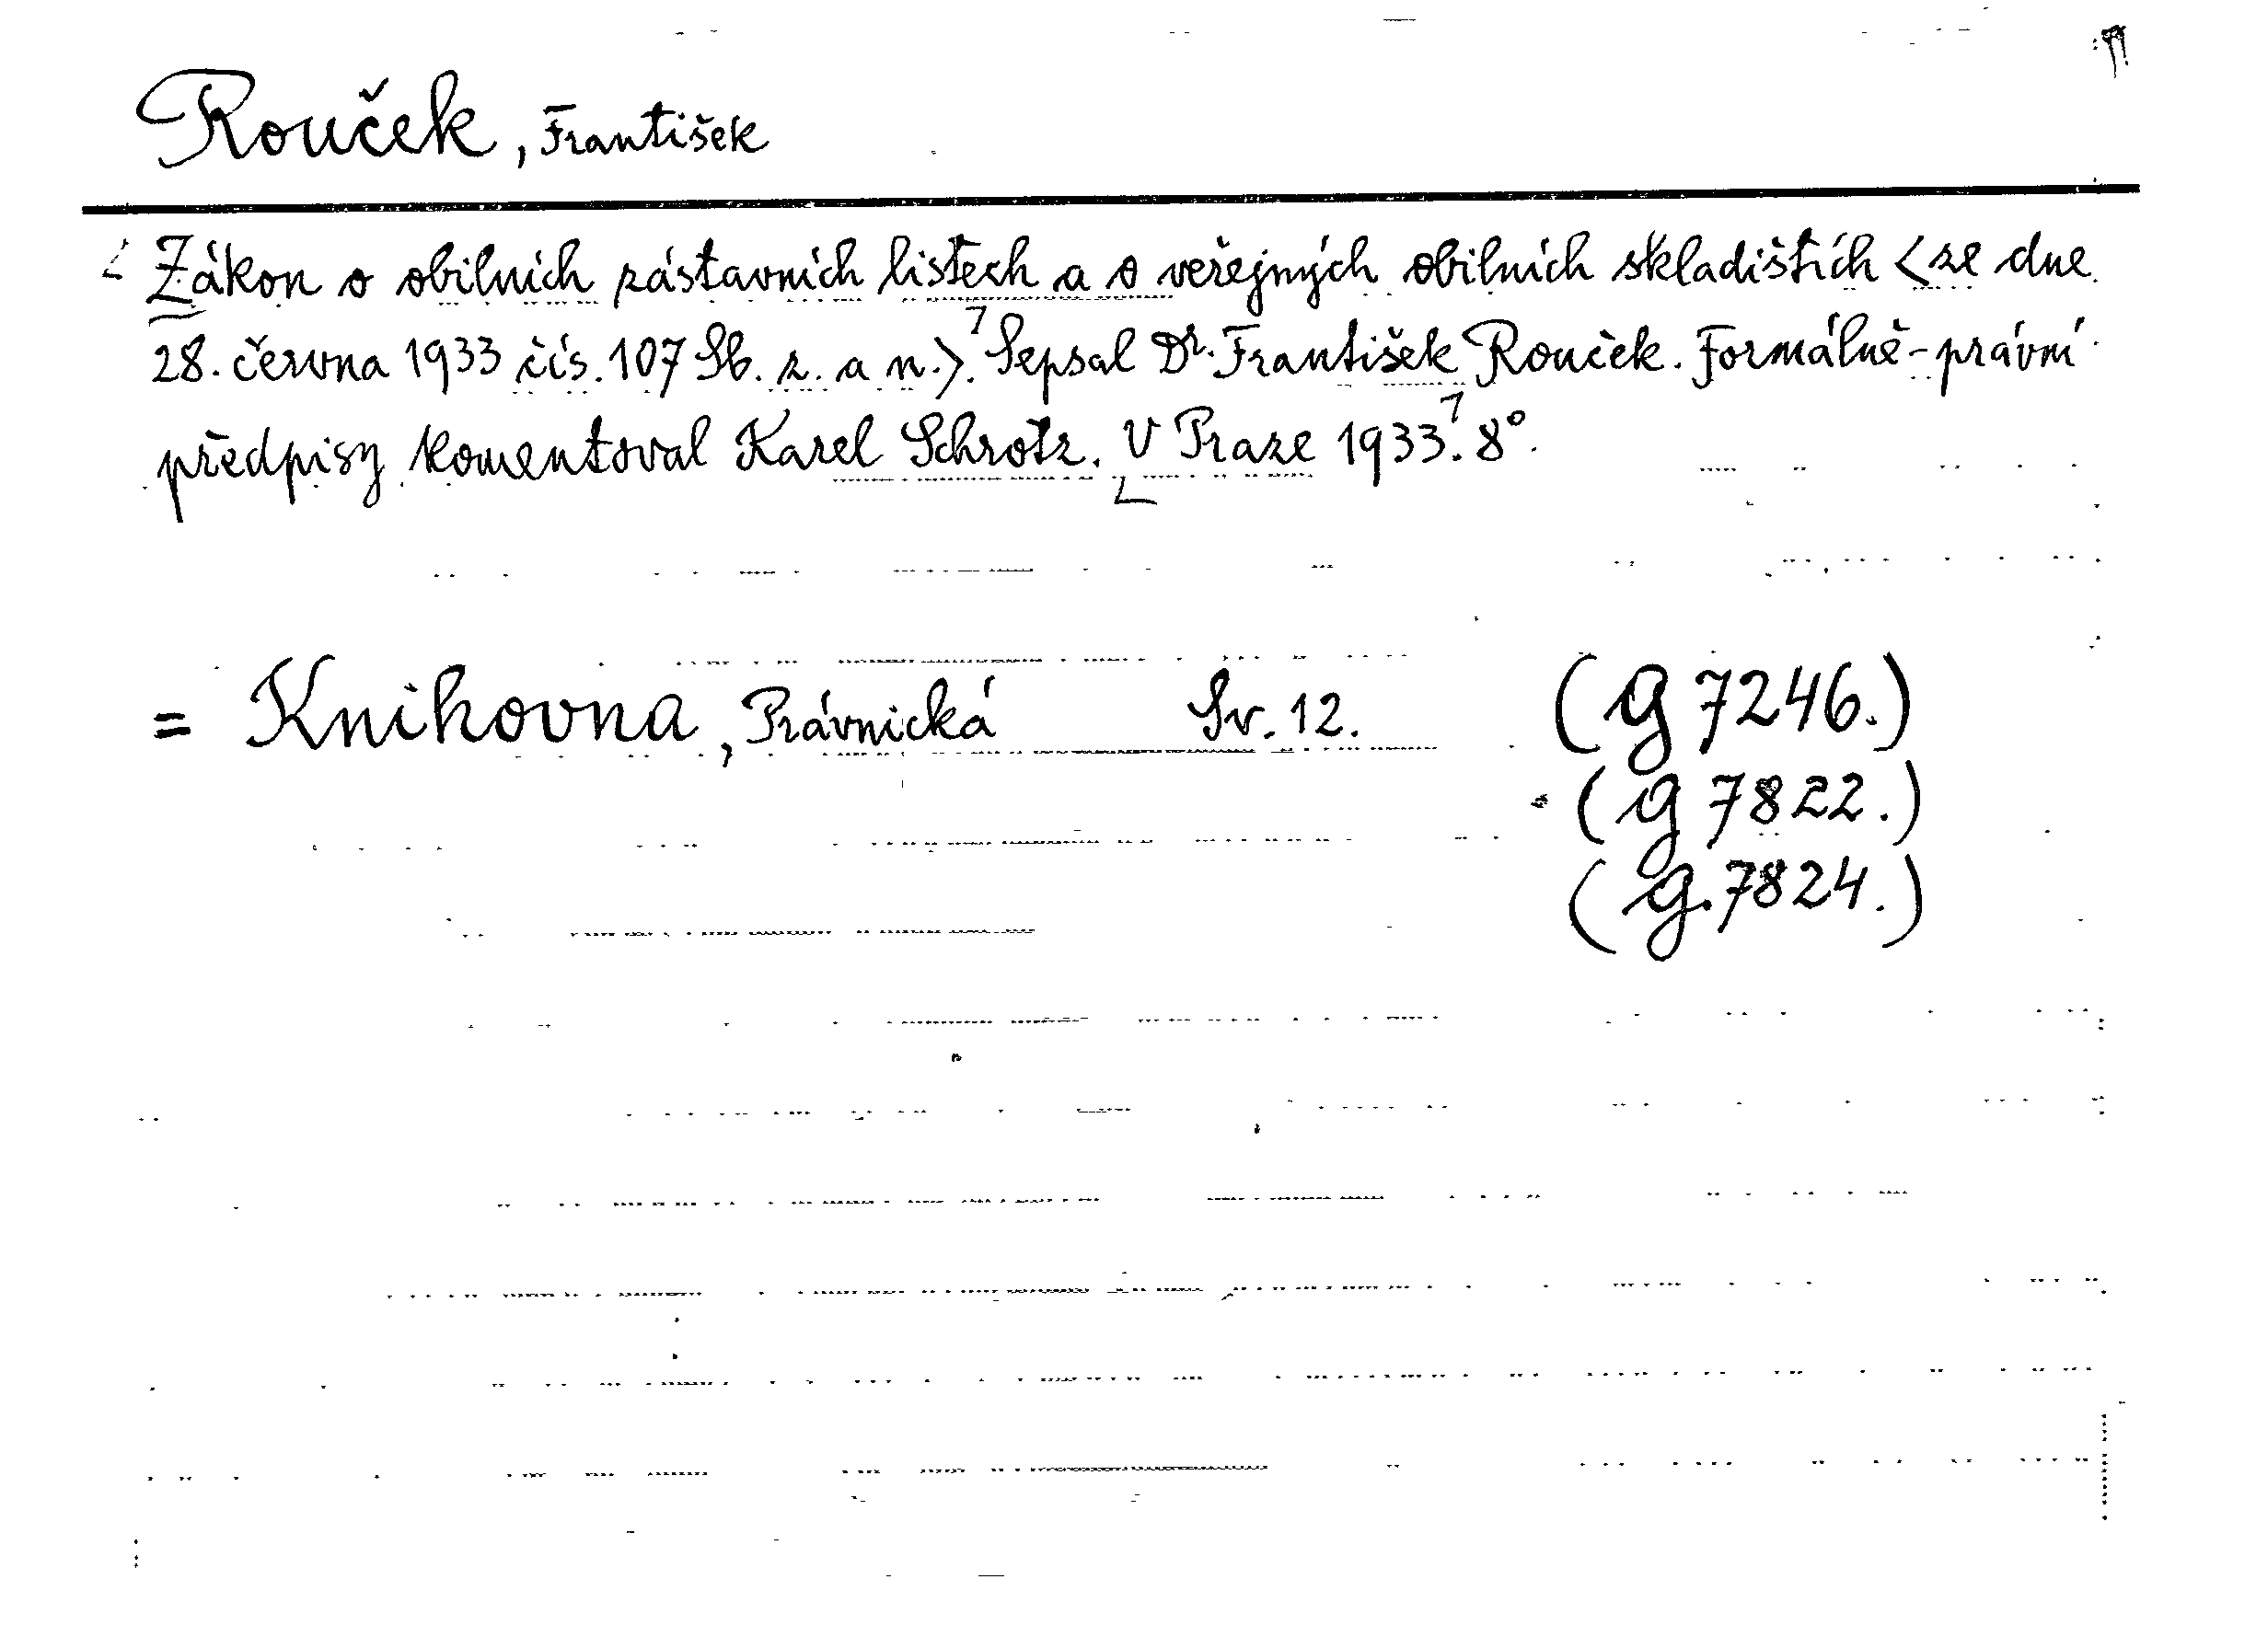 Rouček, František
Zákon o obilních zástavních listech a o veřejných obilních skladištích <ze dne
28. června 1933 čís. 107 Sb. z. a n.>. Sepsal Dr. František Rouček. Formálně-právní
předpisy komentoval Karel Schrotz. V Praze 1933. 8°.
= Knihovna, Právnická Sv. 12. (g 7246.)
(g 7822.)
(g. 7824.)